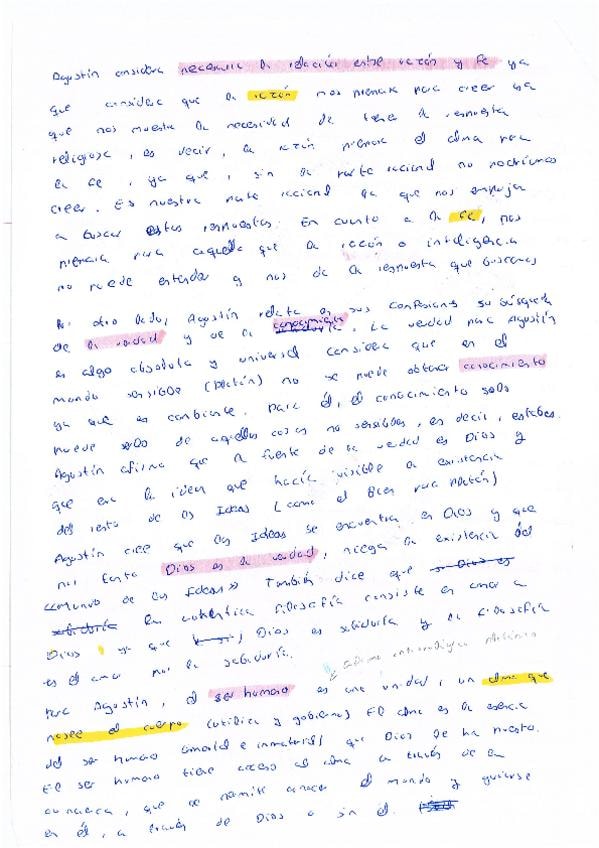 Agustín considera necesaria la relación entre razón y fe ya
que considera que la razón nos prepara para creer ya
que nos muestra la necesidad de tener la respuesta
religiosa, es decir, la razón prepara el alma para
la fe, ya que, sin la parte racional no podríamos
creer. Es nuestra parte racional la que nos empuja
a buscar estas respuestas. En cuanto a la fe, nos
prepara para aquello que la razón o inteligencia
no puede entender y nos da la respuesta que buscamos
Por otro lado, Agustín relata en sus Confesiones su búsqueda
de la verdad y de la conocimiento. La verdad para Agustín
es algo absoluta y universal considera que en el
mundo sensible (Platón) no se puede obtener conocimiento
ya que es cambiante. Para él, el conocimiento solo
puede solo de aquellas cosas no sensibles, es decir, estables.
Agustín afirma que la fuente de la verdad es Dios y
que era la idea que hacía visible la existencia
del resto de las Ideas (como el Bien para Platón)
Agustín cree que las Ideas se encuentra en Dios y que
por tanto Dios es la verdad, niega la existencia del
<<mundo de las Ideas>> También dice que
la auténtica filosofía consiste en amar a
Dios ya que Dios es sabiduría y la filosofía
es el amor por la sabiduría.
Para Agustín, el ser humano es una unidad, un alma que
posee el cuerpo (utiliza y gobierna) El alma es la esencia
del ser humano (inmortal e inmaterial) que Dios le ha puesto.
El ser humano tiene acceso al alma a través de la
que le permite conocer el mundo y guiarse
en él, a través de Dios o sin él.